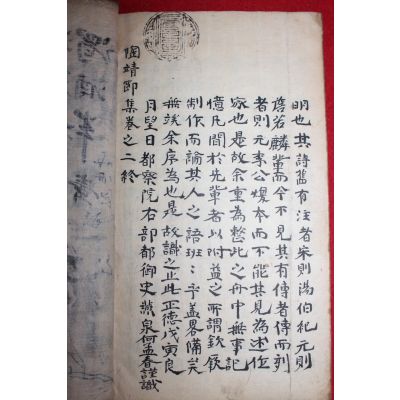 明也其詩舊有注者宋則湯伯紀元則
詹若麟輩而今不見其有傳者傳而列
者則元李公煥本而不能其見為述作
家也是故余重為整此之舟中無事記
憶凡聞於先輩者以附益之所謂欽厥
制作而論其人之語班〻乎盖畧備矣
無竢余序為也是故識之此正德戊寅良
月望日都察院右部都御史燕泉何孟春謹識
陶靖節集卷之二終